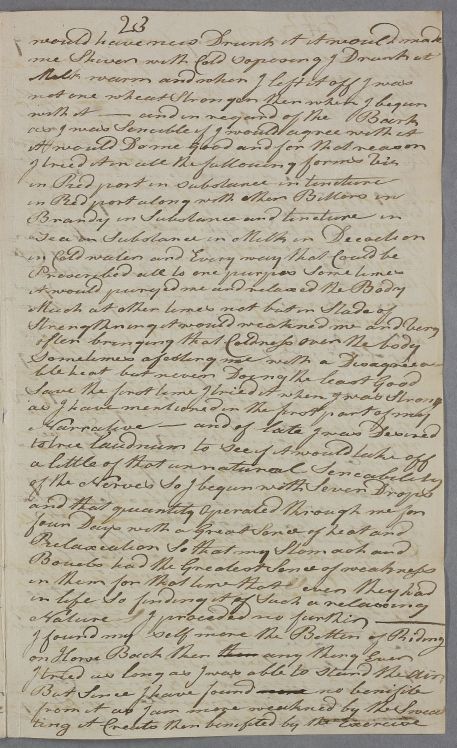 23
would have never Drunk it it would made
me Shiver with Cold soposing I Drunk it
Milk warm and when I left it off I was
not one wheat Stronger then when I begun
with it — and in regard of the Bark
as I was Sencible if I would agree with it
it would Do me Good and for that reason
I tried it in all the following forms Viz
in Red port in Substance in tincture
in Red port along with other Bitters in
Brandy in Substance and tincture in
Tea in Substance in Milk in Decoction
in Cold water and Every way that Could be
Prescribed all to one purpos Some times
it would purg'd me and relaxed the Body
Much at other times not but in Stade of
Strengthning it would weakned me and very
often bringing that Coldness over the body
Sometimes affecting me with a Disagreea-
ble heat but never Doing the least Good
Save the first time I tried it when I was Strong
as I have mentioned in the first part of my
Narrative — and of late I was Desired
to tree laudnum to See if it would take off
a little of that unnatural Sencability
of the Nerves So I begun with Seven Drops
and that quantity operated through me for
four Days with a Great Sence of heat and
Relaxcation So that my Stomach and
Bowels had the Greatest Sence of weakness
in them for that time that ever they had
in life So finding it of Such a relaxing
Nature I proceded no further
I found my self more the Better of Riding
on Horse Back then any thing Ever
I tried as long as I was able to Stand the Air
But Since I have found no benifite
from it as I am more weakned by the Swea
ting it Creats then benifted by the Exercise